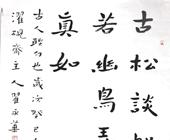 古松談般
若幽鳥弄
真如
古人聯句也歲次癸巳
硯齋主人翟